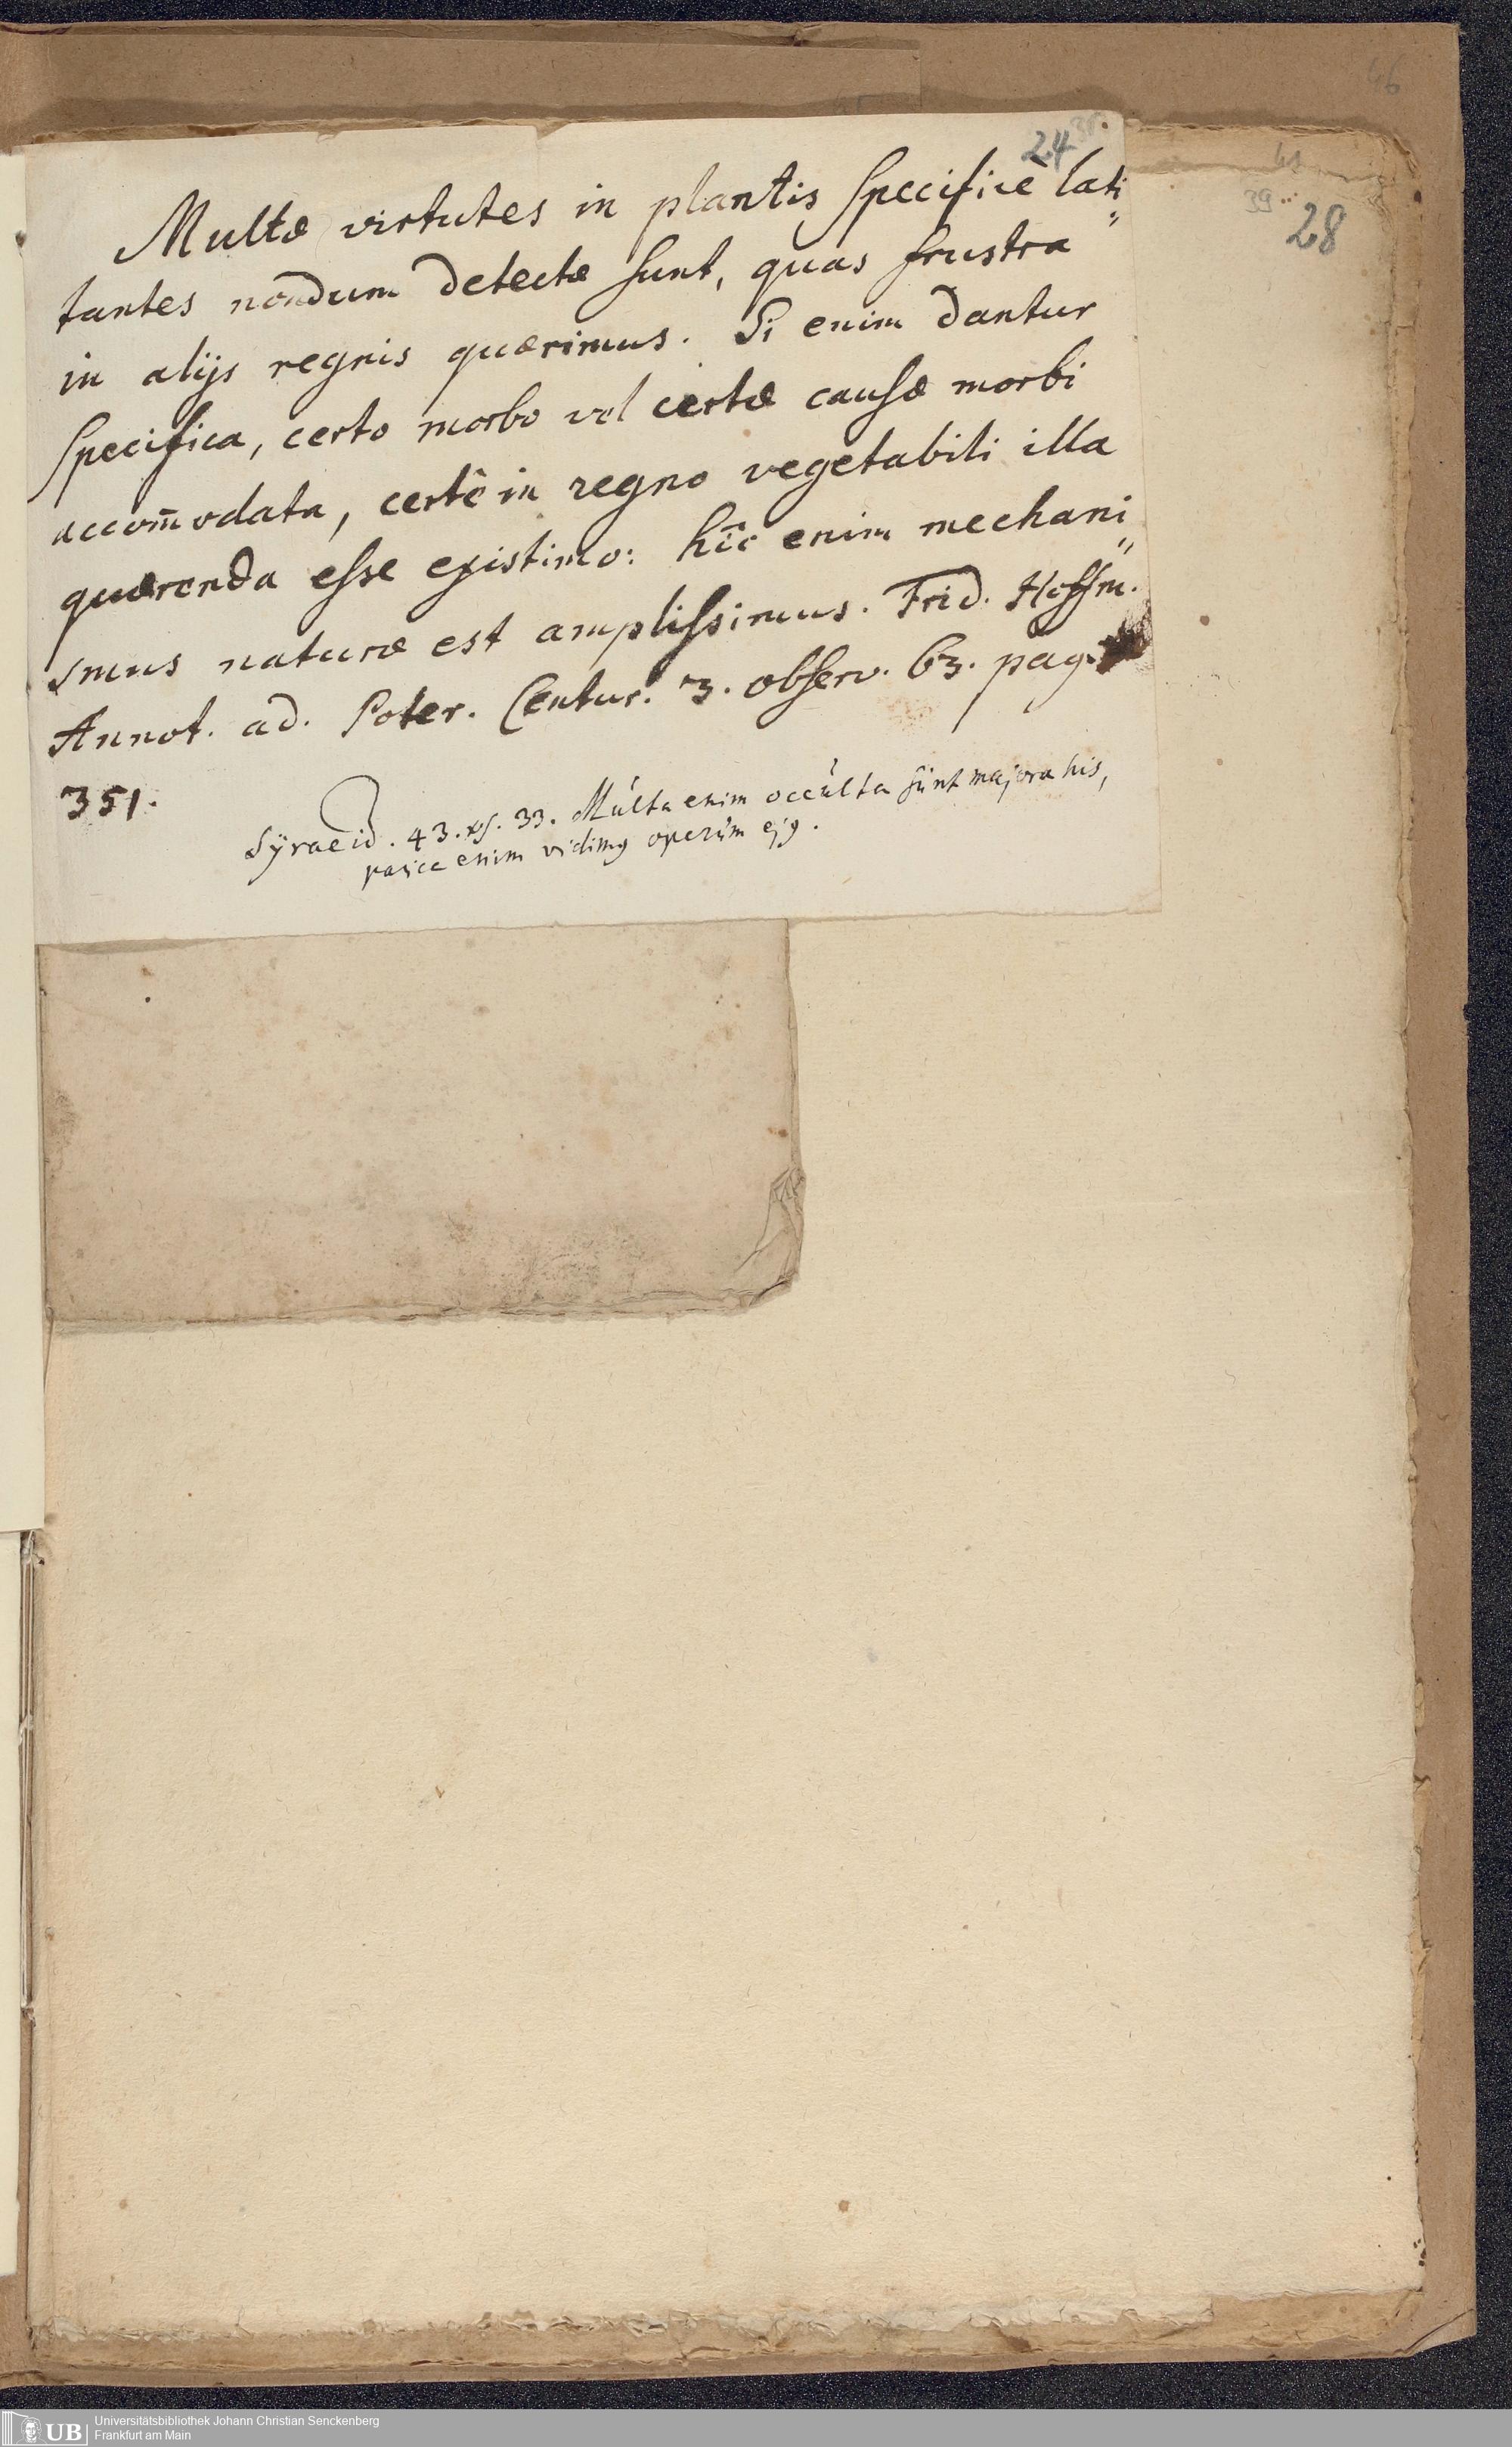 46
24
41
39
28
Multæ virtutes in plantis specificè lati„
tantes nondum detectæ sunt, quas frustra
in alijs regnis quærimus. Si enim dantur
specifica, certo morbo vel certæ causæ morbi
accom̄odata, certè in regno vegetabili illa
quærenda esse existimo: hîc enim mechani„
smus naturæ est amplissimus. Frid. Hoffm.
Annot. ad. Poter. Centur. 3. observ. 63. pag.
351.
Syracid. 43. vs. 33. Multa enim occulta sunt majora his,
pauca enim vidimꝰ operum ejꝰ.
UB
Universitätsbibliothek Johann Christian Senckenberg
Frankfurt am Main